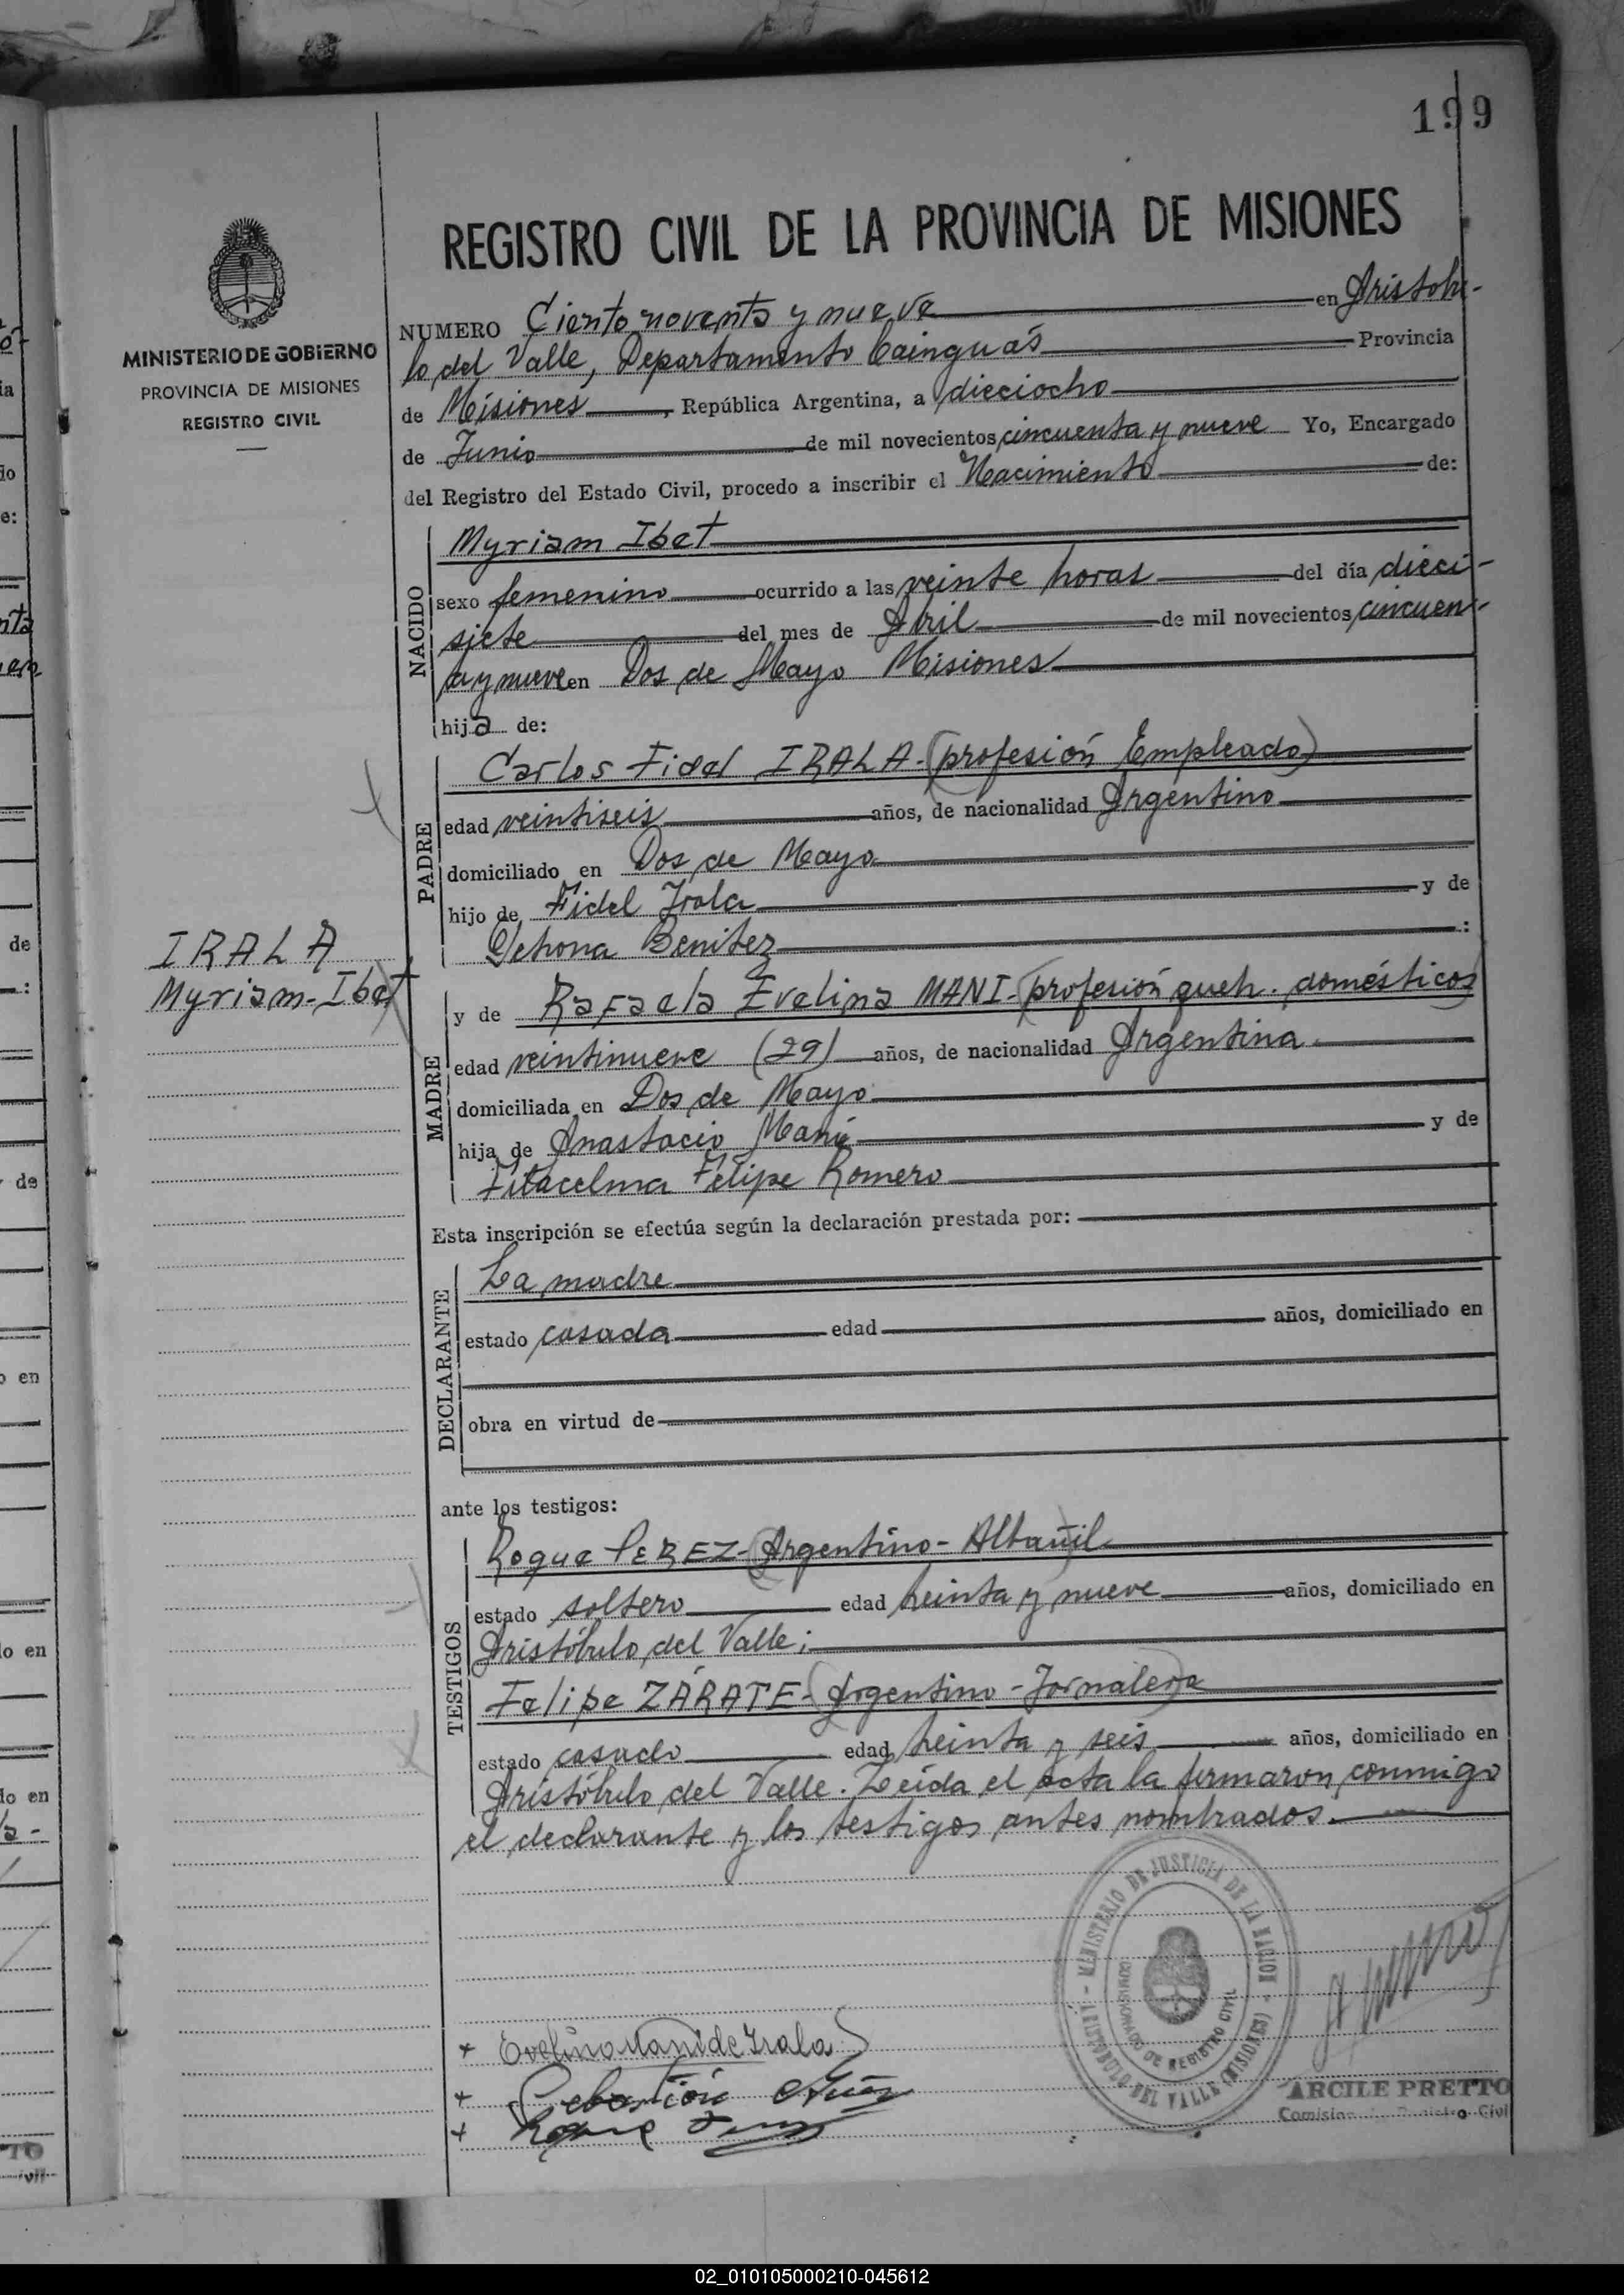 199
MINISTERIO DE GOBIERNO
PROVINCIA DE MISIONES
REGISTRO CIVIL
REGISTRO CIVIL DE LA PROVINCIA DE MISIONES
NUMERO Ciento noventa y nueve en Aristóbu-
lo del Valle, Departamento Cainguás Provincia
de Misiones, República Argentina, a dieciocho
de Junio de mil novecientos cincuenta y nueve Yo, Encargado
del Registro del Estado Civil, procedo a inscribir el Nacimiento de:
NACIDO
Myriam Ibet
sexo femenino ocurrido a las veinte horas del día dieci-
siete del mes de Abril de mil novecientos cincuen-
ta y nueve en Dos de Mayo Misiones
hija de:
PADRE
Carlos Fidel IRALA-(profesión Empleado)
edad veintiseis años, de nacionalidad Argentino
domiciliado en Dos de Mayo
hijo de Fidel Irala y de
Benitez :
IRALA
Myriam-Ibet
MADRE
y de Rafaela Evelina MANI-(profesión queh. domésticos)
edad veintinueve (29) años, de nacionalidad Argentina.
domiciliada en Dos de Mayo
hija de Anastacio Mani y de
Felipe Romero
Esta inscripción se efectúa según la declaración prestada por:
DECLARANTE
La madre
estado casada edad años, domiciliado en
obra en virtud de
ante los testigos:
TESTIGOS
Roque PEREZ-(Argentino-Albañil
estado soltero edad treinta y nueve años, domiciliado en
Aristóbulo del Valle;
Felipe ZÁRATE-(Argentino-Jornalero
estado casado edad treinta y seis años, domiciliado en
Aristóbulo del Valle. Leída el acta la firmaron conmigo
el declarante y los testigos antes nombrados.
MINISTERIO DE JUSTICIA DE LA NACION - ARISTOBULO DEL VALLE (MISIONES)
COMISIONADO DE REGISTRO CIVIL
Evelina Mani de Irala
Sebastión
Roque
ARCILE PRETTO
02_010105000210-045612